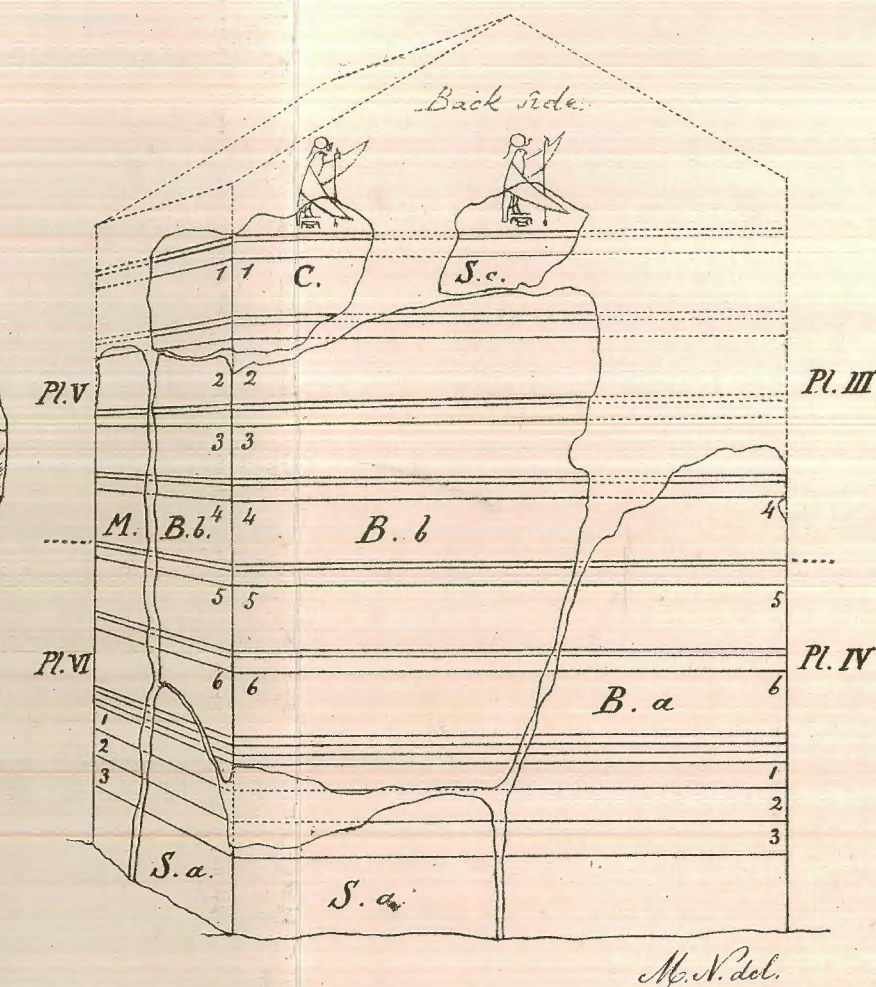 Back side.
1 1 C. S. c.
Pl. V 2 2 Pl. III
3 3
M. B. b. 4 4 B. b 4
5 5 5
Pl. VI 6 6 B. a 6 Pl. IV
1 1
2 2
3 3
S. a. S. a.
M. N. del.